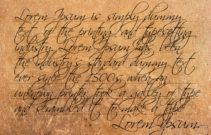 Lorem Ipsum is simply dummy
text of the printing and typesetting
industry. Lorem Ipsum has been
the industry's standard dummy text
ever since the 1500s, when an
unknown printer took a galley of type
and scrambled it to make a type
Lorem Ipsum.